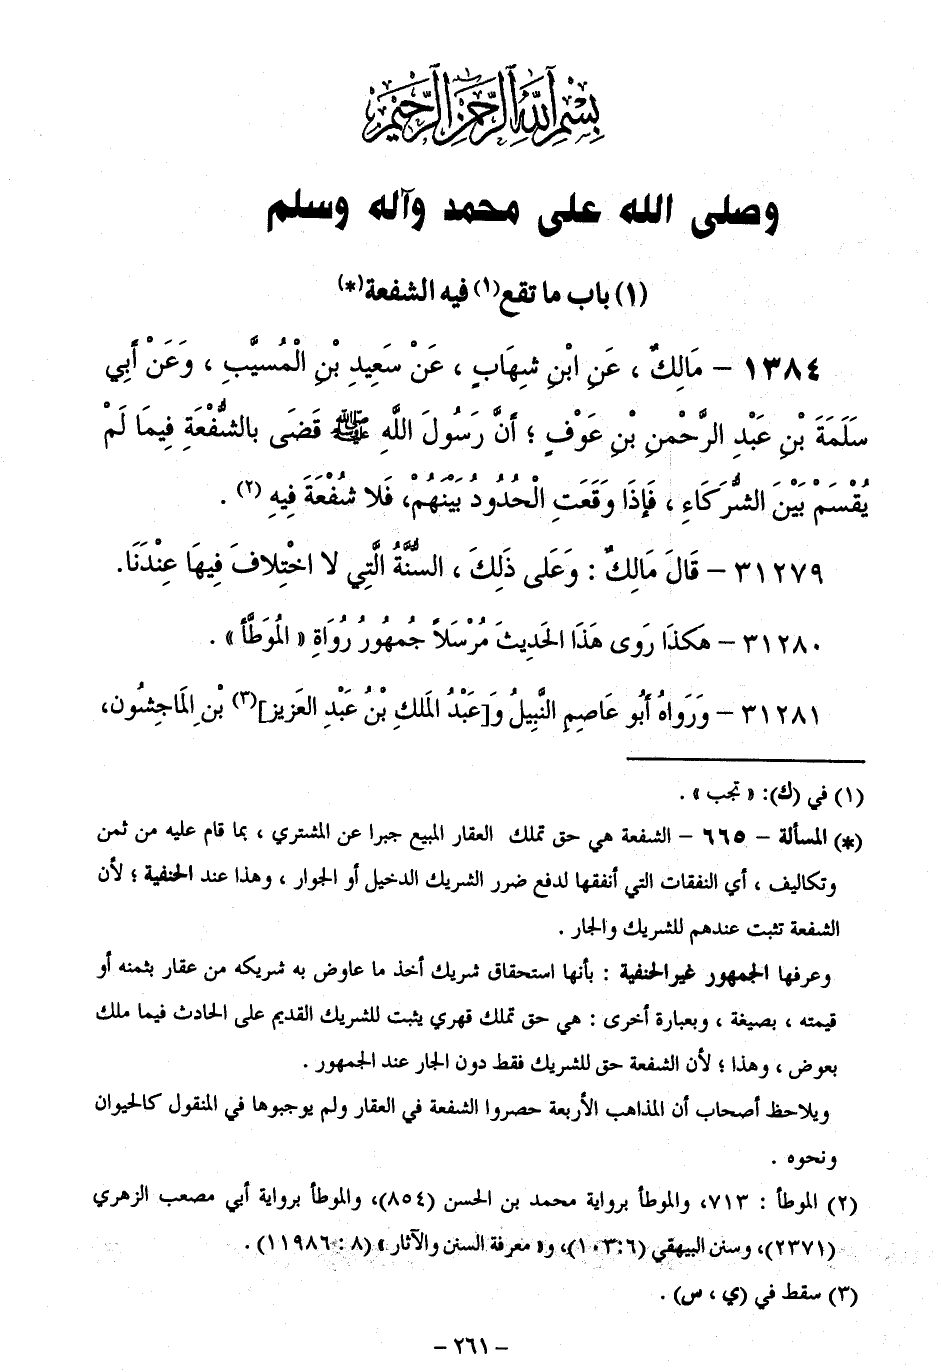 بِسْمِ اللَّهِ الرَّحْمَنِ الرَّحِيمِ
وصلى الله على محمد وآله وسلم
(١) باب ما تقع(١) فيه الشفعة(*)
١٣٨٤ – مَالِكٌ ، عَنِ ابْنِ شِهَابٍ ، عَنْ سَعِيدِ بْنِ الْمُسيَّبِ ، وَعَنْ أَبِي
سَلَمَةَ بْنِ عَبْدِ الرَّحْمنِ بْنِ عَوْفٍ ؛ أَنَّ رَسُولَ اللَّهِ ﷺ قَضَى بالشُّفْعَةِ فِيمَا لَمْ
يُقْسَمْ بَيْنَ الشُّرَكَاءِ ، فَإِذَا وَقَعَتِ الْحُدُودُ بَيْنَهُمْ، فَلا شُفْعَةَ فِيهِ (٢) .
٣١٢٧٩ – قَالَ مَالِكٌ : وَعَلَى ذَلِكَ ، السُّنَّةُ الَّتِي لا اخْتِلافَ فِيهَا عِنْدَنَا.
٣١٢٨٠ – هَكذَا رَوَى هَذَا الحَدِيثَ مُرْسَلاً جُمهُورُ رُوَاةِ « المُوَطَّأ » .
٣١٢٨١ – وَرَوَاهُ أَبُو عَاصِمٍ النَّبِيلُ وَ[عَبْدُ المَلكِ بْنُ عَبْدِ العَزيز](٣) بْنِ المَاجِشُون،
(١) في (ك): « تجب » .
(*) المسألة – ٦٦٥ – الشفعة هي حق تملك العقار المبيع جبرا عن المشتري ، بما قام عليه من ثمن
وتكاليف ، أي النفقات التي أنفقها لدفع ضرر الشريك الدخيل أو الجوار ، وهذا عند الحنفية ؛ لأن
الشفعة تثبت عندهم للشريك والجار .
وعرفها الجمهور غير الحنفية : بأنها استحقاق شريك أخذ ما عاوض به شريكه من عقار بثمنه أو
قيمته ، بصيغة ، وبعبارة أخرى : هي حق تملك قهري يثبت للشريك القديم على الحادث فيما ملك
بعوض ، وهذا ؛ لأن الشفعة حق للشريك فقط دون الجار عند الجمهور .
ويلاحظ أصحاب أن المذاهب الأربعة حصروا الشفعة في العقار ولم يوجبوها في المنقول كالحيوان
ونحوه .
(٢) الموطأ : ٧١٣، والموطأ برواية محمد بن الحسن (٨٥٤)، والموطأ برواية أبي مصعب الزهري
(٢٣٧١)، وسنن البيهقي (٦:١٠٣)، و« معرفة السنن والآثار » (٨ : ١١٩٨٦) .
(٣) سقط في (ي ، س) .
– ٢٦١ –